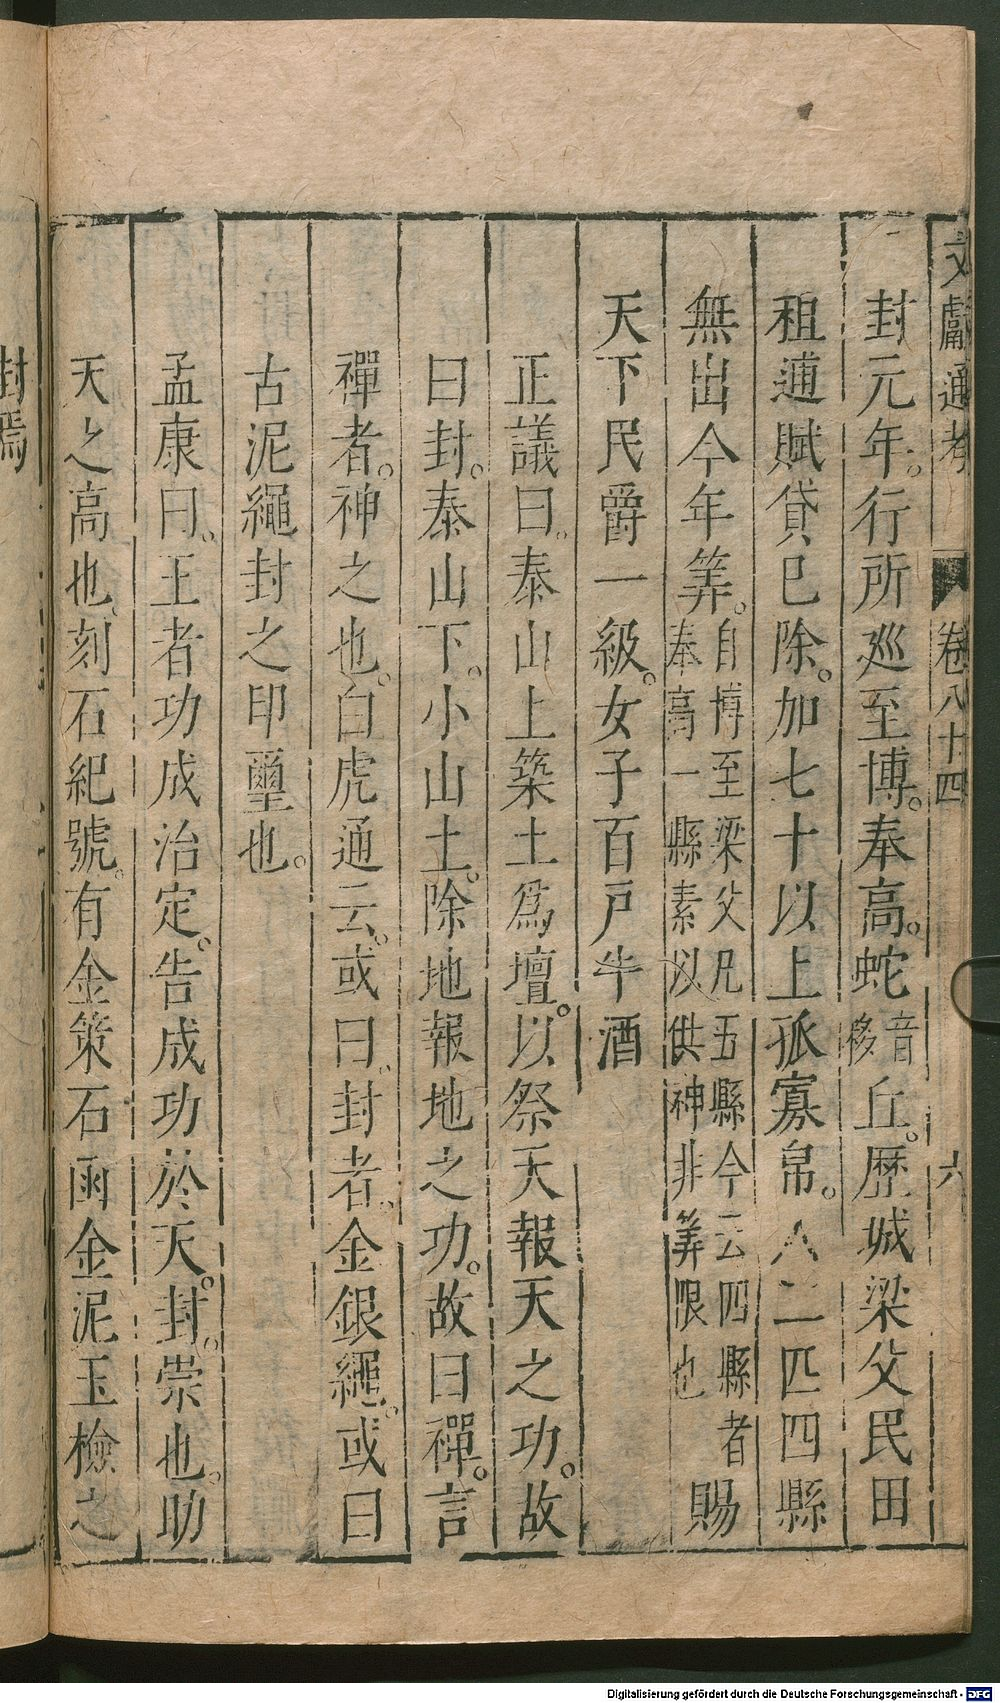 文獻通考 卷八十四 六
封元年。行所巡至博。奉高。蛇音移丘。歷城梁父民田
租逋賦貸已除。加七十以上孤寡帛。人二匹四縣
無出今年筭。自博至梁父凡五縣今云四縣者奉高一縣素以供神非筭限也賜
天下民爵一級。女子百戶牛酒
正議曰。泰山上築土爲壇。以祭天報天之功。故
曰封。泰山下。小山土。除地報地之功。故曰禪。言
禪者。神之也。白虎通云。或曰。封者。金銀繩。或曰
古泥繩封之印璽也。
孟康曰。王者功成治定。告成功於天。封。崇也。助
天之高也。刻石紀號。有金策石函金泥玉檢之
封焉
Digitalisierung gefördert durch die Deutsche Forschungsgemeinschaft - DFG